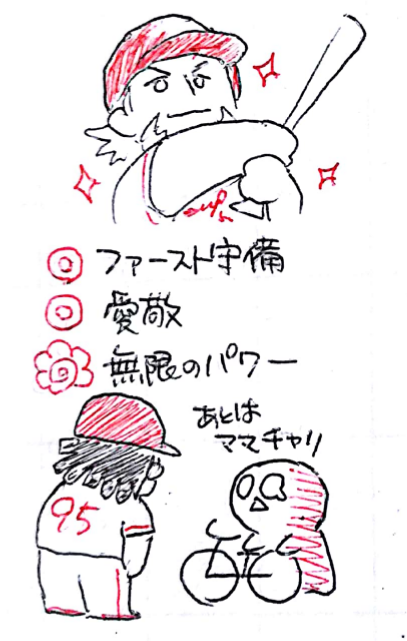 ファースト守備
愛敬
無限のパワー
あとは
ママチャリ
95